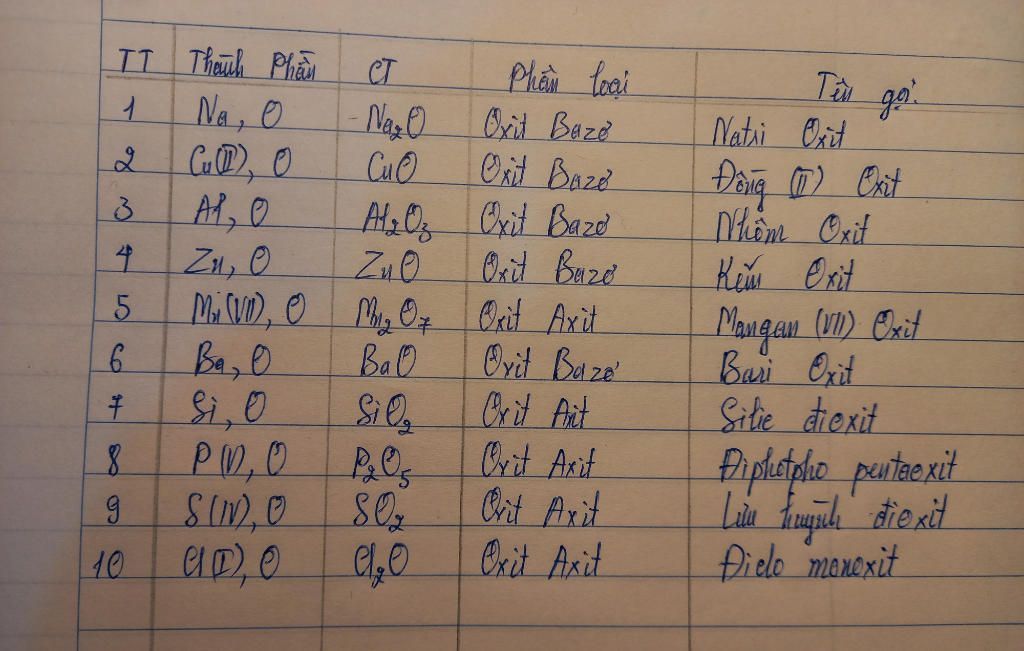 TT Thành Phần CT Phân loại Tên gọi
1 Na, O Na₂O Oxit Bazơ Natri Oxit
2 Cu(II), O CuO Oxit Bazơ Đồng (II) Oxit
3 Al, O Al₂O₃ Oxit Bazơ Nhôm Oxit
4 Zn, O ZnO Oxit Bazơ Kẽm Oxit
5 Mn(VII), O Mn₂O₇ Oxit Axit Mangan (VII) Oxit
6 Ba, O BaO Oxit Bazơ Bari Oxit
7 Si, O SiO₂ Oxit Axit Silic đioxit
8 P(V), O P₂O₅ Oxit Axit Điphotpho pentaoxit
9 S(IV), O SO₂ Oxit Axit Lưu huỳnh đioxit
10 Cl(I), O Cl₂O Oxit Axit Điclo monoxit